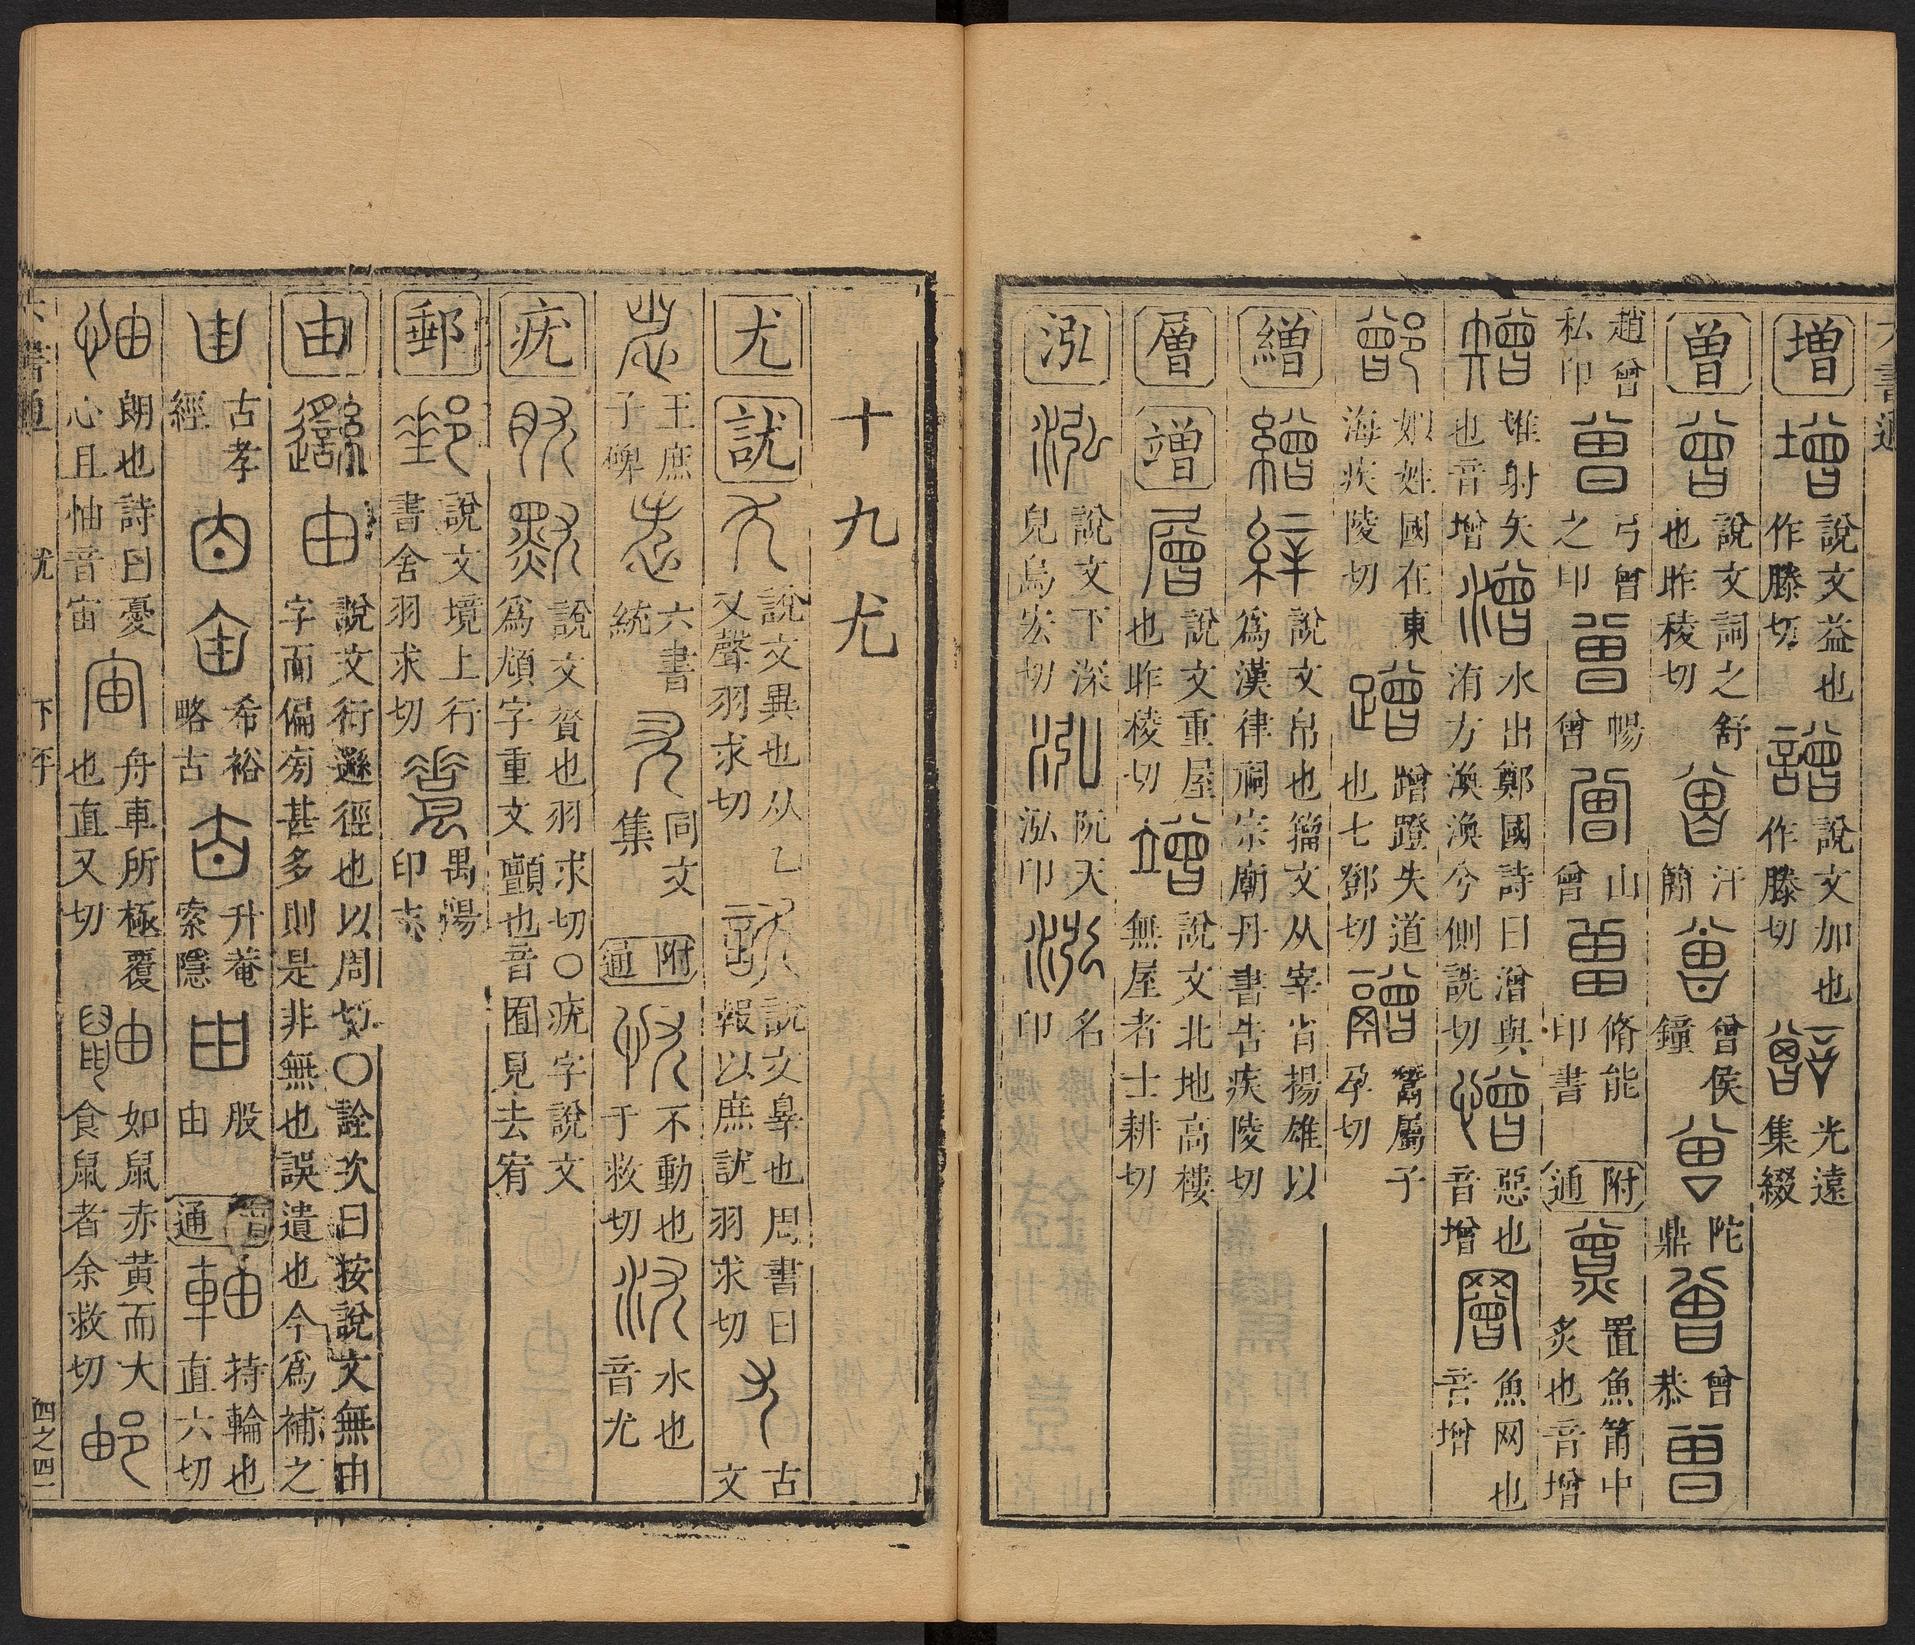 增 說文益也作滕切 說文加也作滕切 光遠集綴
曾 說文詞之舒也昨稜切 汗簡 曾侯鐘 陀鼎 曾恭
趙曾私印 弓曾之印 暢曾 山曾 脩能印書 附通 置魚筩中炙也音增
堆射矢也音增 水出鄭國詩曰潧與洧方渙渙兮側詵切 惡也音增 魚网也音增
姒姓國在東海疾陵切 蹭蹬失道也七鄧切 鬵屬子孕切
繒 說文帛也籀文从宰省揚雄以爲漢律祠宗廟丹書告疾陵切
層 竲 說文重屋也昨稜切 說文北地高樓無屋者士耕切
泓 說文下深皃烏宏切 阮天泓印 名印
十九尤
尤 訧 說文異也从乙又聲羽求切 說文辠也周書曰報以庶訧羽求切 古文
王庶子碑 六書統 同文集 附通 不動也于救切 水也音尤
疣 說文贅也羽求切○疣字說文爲頄字重文 顫也音囿見去宥
郵 說文境上行書舍羽求切 禺陽印
由 說文衍邎徑也以周切○詮次曰按說文無由字而偏旁甚多則是非無也誤遺也今爲補之
古孝經 希裕略古 升菴索隱 殷由 通 持輪也直六切
朗也詩曰憂心且怞音宙 舟車所極覆也直又切 如鼠赤黃而大食鼠者余救切
尤 下平 四之四